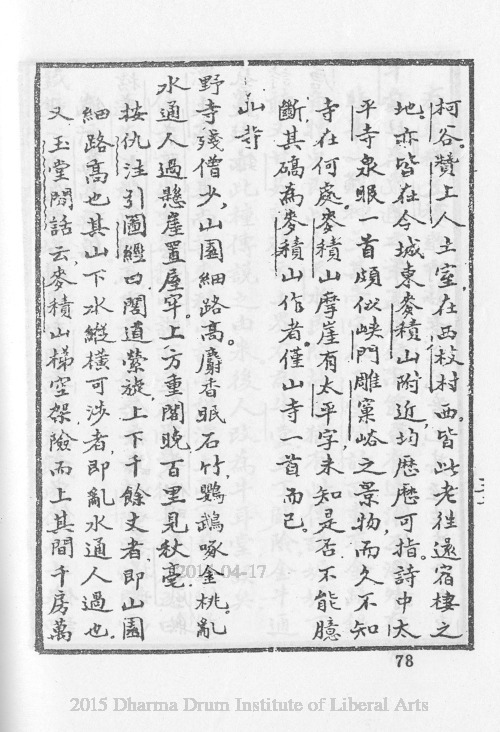 柯谷。贊上人土室,在西枝村西。皆此老往還宿棲之
地。亦皆在今城東麥積山附近,均歷歷可指。詩中太
平寺泉眼一首頗似峽門雕窠峪之景物,而久不知
寺在何處。麥積山摩崖有太平字未知是否不能臆
斷其确為麥積山作者。僅山寺一首而已。
山寺
野寺殘僧少,山園細路高。麝香眠石竹,鸚鵡啄金桃。亂
水通人過,懸崖置屋牢。上方重閣晚,百里見秋毫。
按仇注引圖經曰閣道縈旋上下千餘丈者即山園
細路高也。其山下水縱橫可涉者,即亂水通人過也。
又玉堂閒話云,麥積山梯空架險而上其間千房萬
78
2014-04-17
2015 Dharma Drum Institute of Liberal Arts